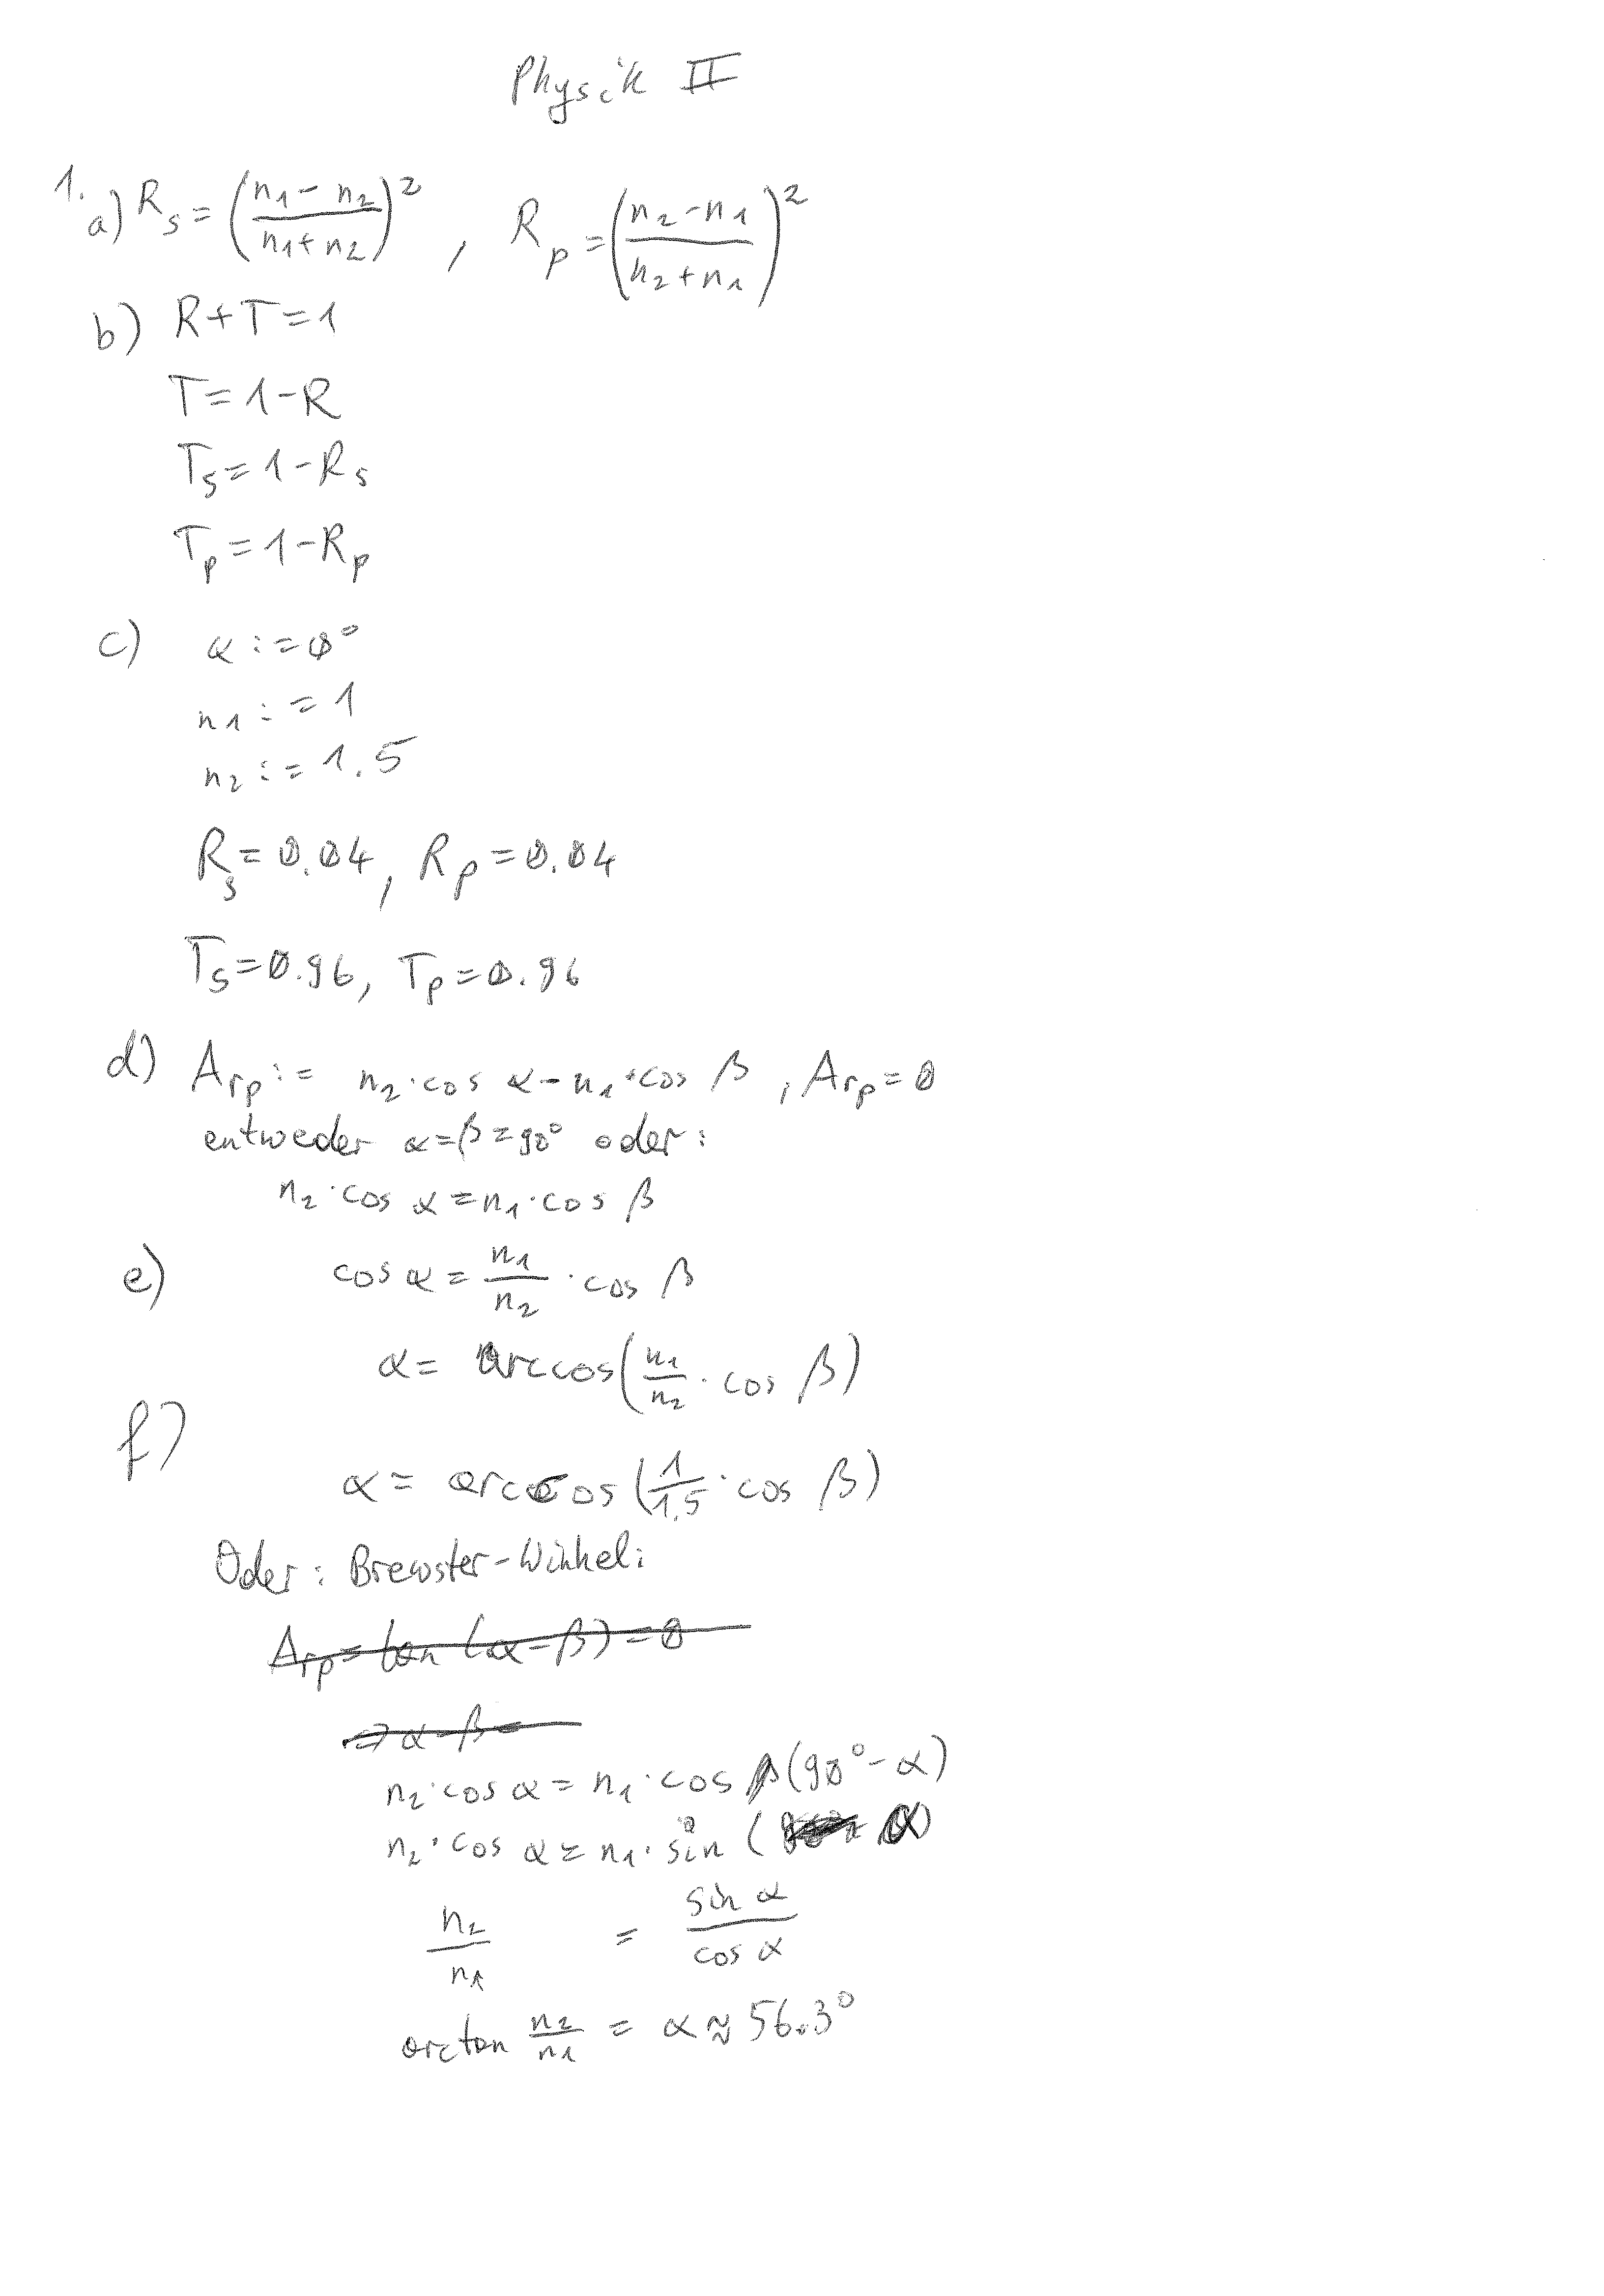 Physik II
1. a) R_s = ((n_1 - n_2)/(n_1 + n_2))^2 , R_p = ((n_2 - n_1)/(n_2 + n_1))^2
b) R + T = 1
T = 1 - R
T_s = 1 - R_s
T_p = 1 - R_p
c) α := 0°
n_1 := 1
n_2 := 1.5
R_s = 0.04, R_p = 0.04
T_s = 0.96, T_p = 0.96
d) A_rp := n_2 · cos α - n_1 · cos β , A_rp = 0
entweder α = β = 90° oder:
n_2 · cos α = n_1 · cos β
e) cos α = n_1/n_2 · cos β
α = arccos(n_1/n_2 · cos β)
f)
α = arccos(1/1.5 · cos β)
Oder: Brewster-Winkel:
A_rp = tan (α - β) = 0
⇒ α - β =
n_2 · cos α = n_1 · cos (90° - α)
n_2 · cos α = n_1 · sin (α)
n_2/n_1 = sin α/cos α
arctan n_2/n_1 = α ≈ 56.3°